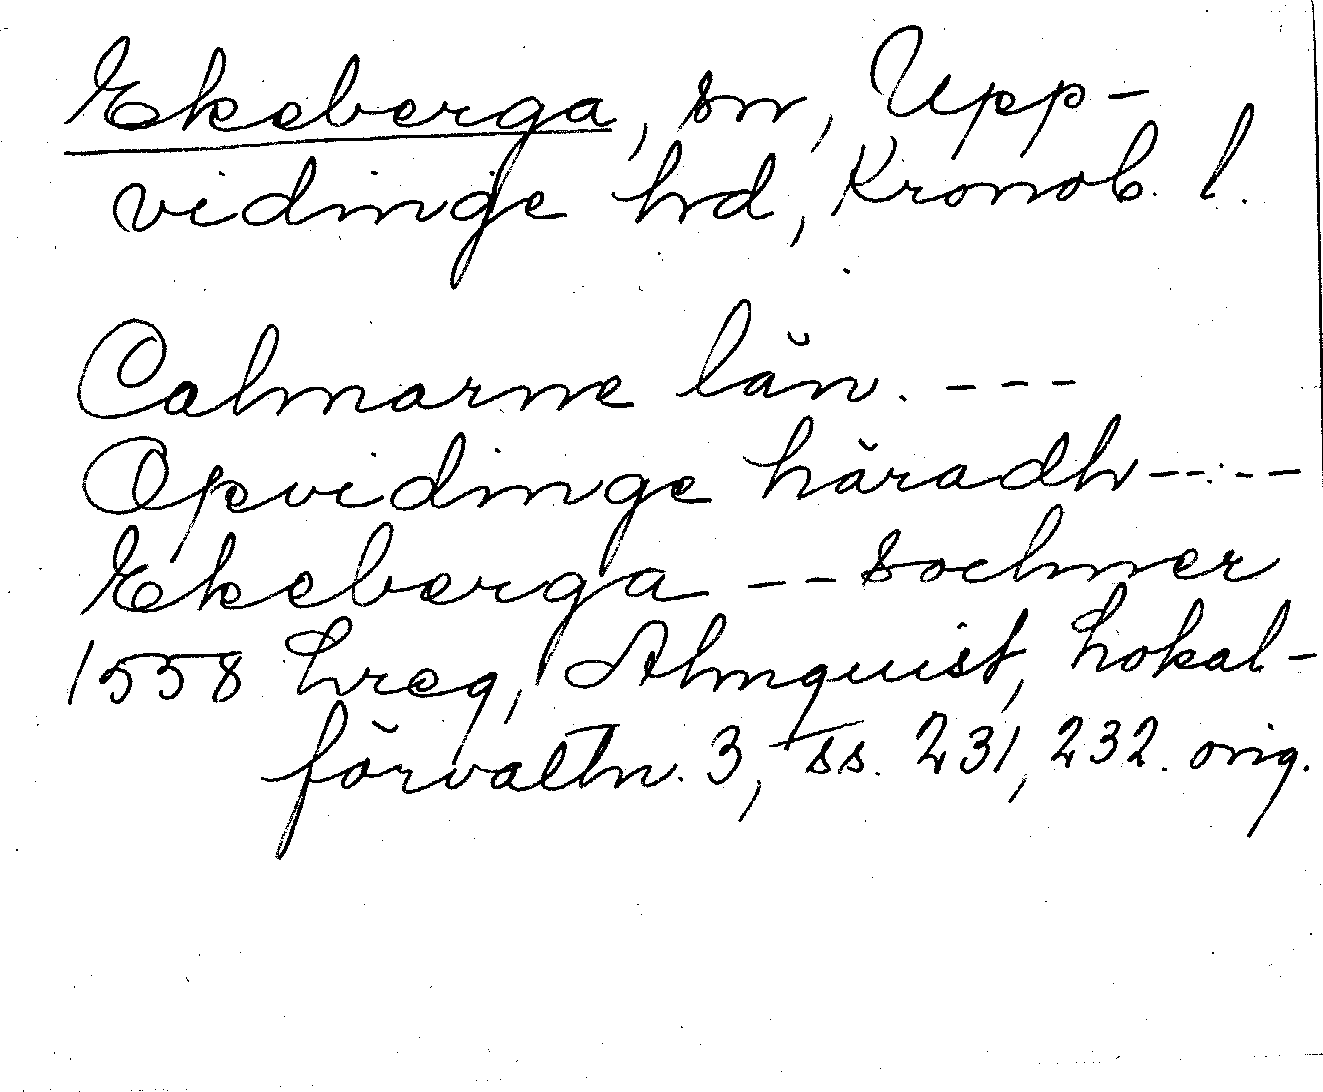 Ekeberga, sn, Upp-
vidinge hd, Kronob. l.
Calmarne län. ---
Opvidinge häradh----
Ekeberga -- sochner
1558 hreg, Almquist, Lokal-
förvaltn. 3, ss. 231, 232. orig.